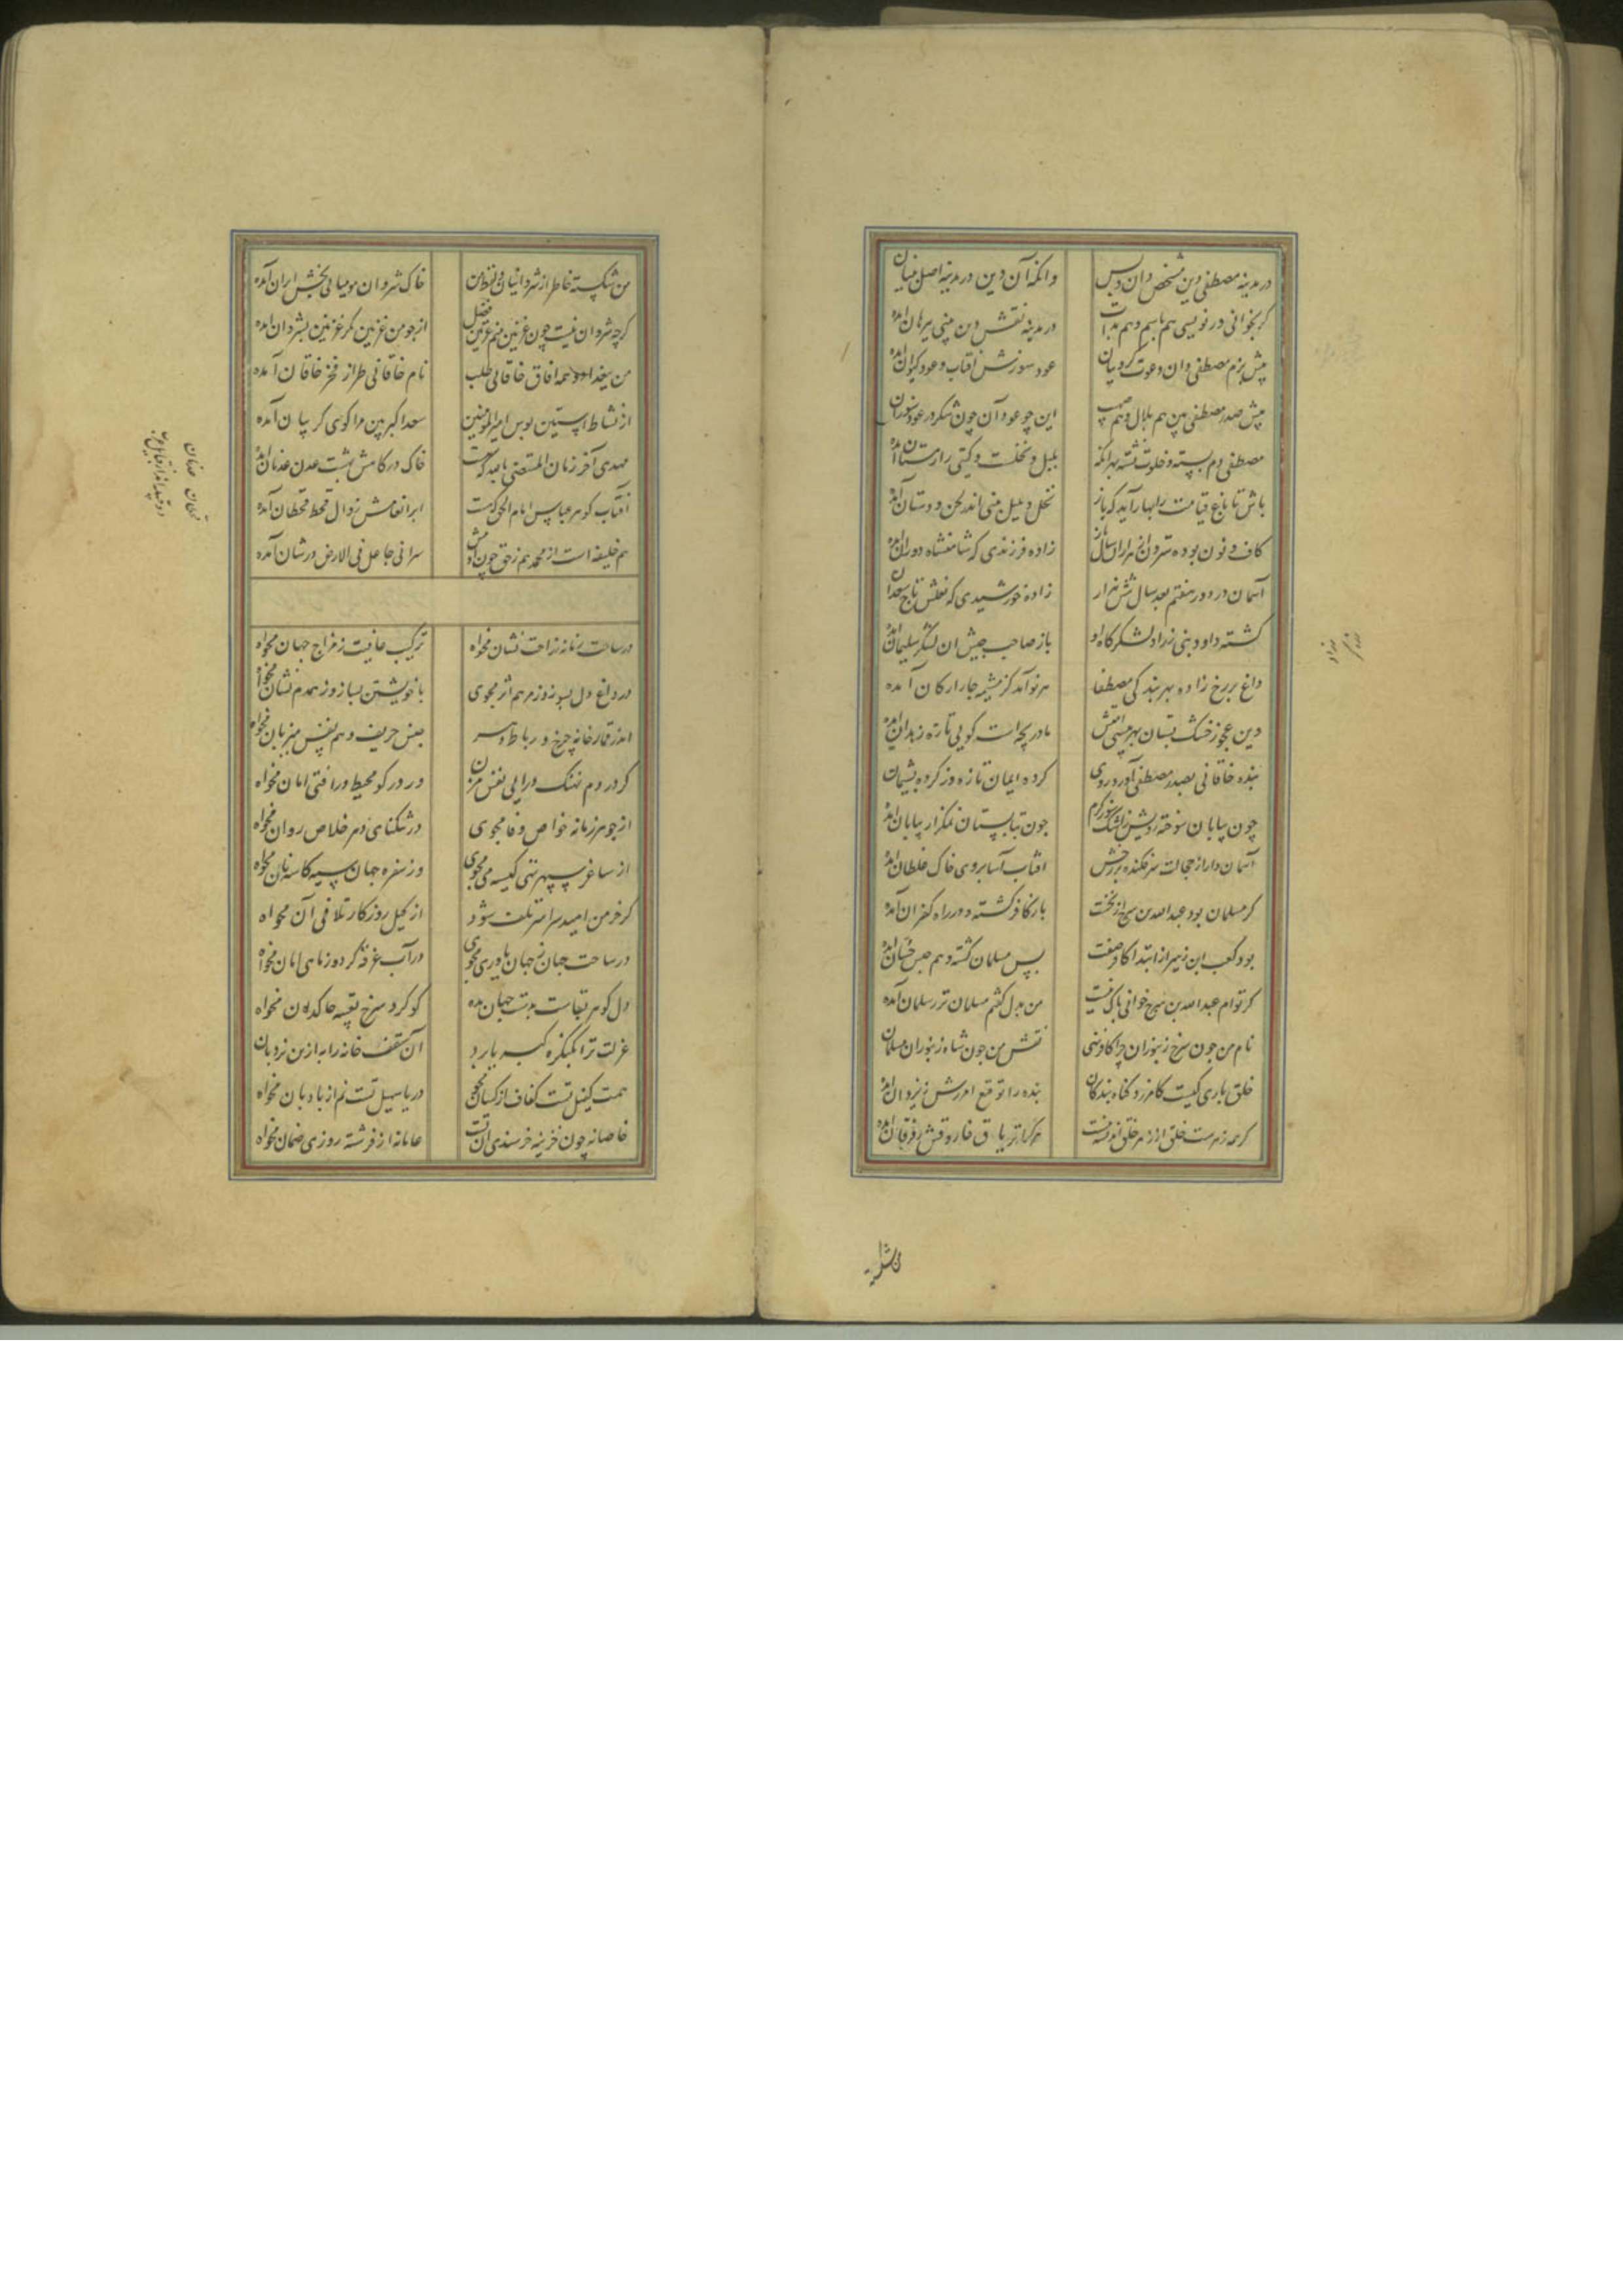 در مدینه مصطفی دین شخص دان و بس
وانکه آن دین در مدینه اصل بنیان
کر بخوانی ور نویسی هم باسم و هم بذات
در مدینه نقش دین بینی ببرهان آمده
پیش بزم مصطفی دان دعوت کروبیان
عود سوزش آفتاب و عود کیوان آمده
پیش صدر مصطفی بین هم بلال و هم صهیب
این چو عود آن چون شکر در عود سوزان
مصطفی دم بسته و خلوت نشسته بهر انکه
بلبل و نخلست و کیتی را زمستان آمده
باش تا باغ قیامت را بهار آید که باز
نخل و بلبل بینی اندر لحن و دستان آمده
کاف و نون بوده سترون از هزاران سال باز
زاده فرزندی که شاهنشاه دوران آمده
آسمان در دور هفتم بعد سال شش هزار
زاده خورشیدی که نعلش تاج سعدان
کشته داود نبی زراد لشکرکاه او
باز صاحب جیش آن لشکر سلیمان آمده
داغ بر رخ زاده بهر بندکی مصطفا
هر نو آمد کز مشیمه چار ارکان آمده
دین عجوز خشک پستان بهر پیشی امتش
مادر یچه است کویی تازه زهدان آمده
بنده خاقانی بصدر مصطفی آورد روی
کرده ایمان تازه وز کرده پشیمان
چون بیابان سوخته رویش ز اشک شور گرم
چون تابستان نمکزار بیابان آمده
آسمان وار از خجالت سرفکنده بر زمین
افتاب آسا بروی خاک غلطان آمده
کر مسلمان بود عبدالله بن سرح از نخست
باز کافر کشته و در راه کفران آمده
بود کعب ابن زهیر از ابتدا کافر صفت
پس مسلمان کشته و هم جنس حسان آمده
کر توام عبدالله بن سرح خوانی باک نیست
من بدل کعبم مسلمان تر ز سلمان آمده
نام من چون سرخ زنبوران چرا کافر نهی
نقش من چون شاه زنبوران مسلمان
خلق باری کیست کامرزد کناه بندکان
بنده را توقیع امرزش ز یزدان آمده
کر همه زهرست خلق از زهر خلق اندیشه نیست
هر کرا تریاق فاروقش ز فرقان آمده
من شکسته
من شکسته خاطر از شروانیان وز لفظ من
خاک شروان مومیایی بخش ایران آمده
کرچه شروان نیست چون غزنین منم غزنین فضل
از چو من غزنین مکر غزنین بشروان آمده
من بغداد و همه آفاق خاقانی طلب
نام خاقانی طراز فخر خاقان آمده
از نشاط آستین بوس امیرالمومنین
سعد اکبر بین مرا کوی کریبان آمده
مهدی آخر زمان المستضی بالله که هست
خاک درکاهش بهشت عدن عدنان آمده
آفتاب کوهر عباس امام الحق که هست
ابر انعامش زوال قحط قحطان آمده
هم خلیفه است از محمد هم ز حق چون آدمش
سر انی جاعل فی الارض در شان آمده
در ساحت زمانه ز راحت نشان مخواه
ترکیب عافیت ز مزاج جهان مخواه
در داغ دل بسوز و ز مرهم اثر مجوی
با خویشتن بساز و ز همدم نشان مخواه
اندر قمارخانه چرخ و رباط دهر
جنس حریف و هم نفس میزبان مخواه
کر در دم نهنک درایی نفس مزن
ور در کو محیط درافتی امان مخواه
از جوهر زمانه خواص وفا مجوی
در تنکنای دهر خلاص روان مخواه
از ساغر سپهر تهی کیسه می مجوی
وز سفره جهان سیه کاسه نان مخواه
کر خرمن امید سراسر تلف شود
از کیل روزکار تلافی آن مخواه
در ساحت جهان ز جهان یاوری مجوی
در آب غرقه کرد وز ماهی امان مخواه
دل کوهر بقاست بدست جهان مده
کوکرد سرخ تعبیه خاکدان مخواه
عزلت ترا بکنکره کبریا برد
آن سقف خانه را به ازین نردبان
همت کفیل تست کفاف از کسان مجوی
دریا سبیل تست نم از بادبان مخواه
خاصانه چون خزینه خرسندی آن تست
عامانه از فرشته روزی ضمان مخواه